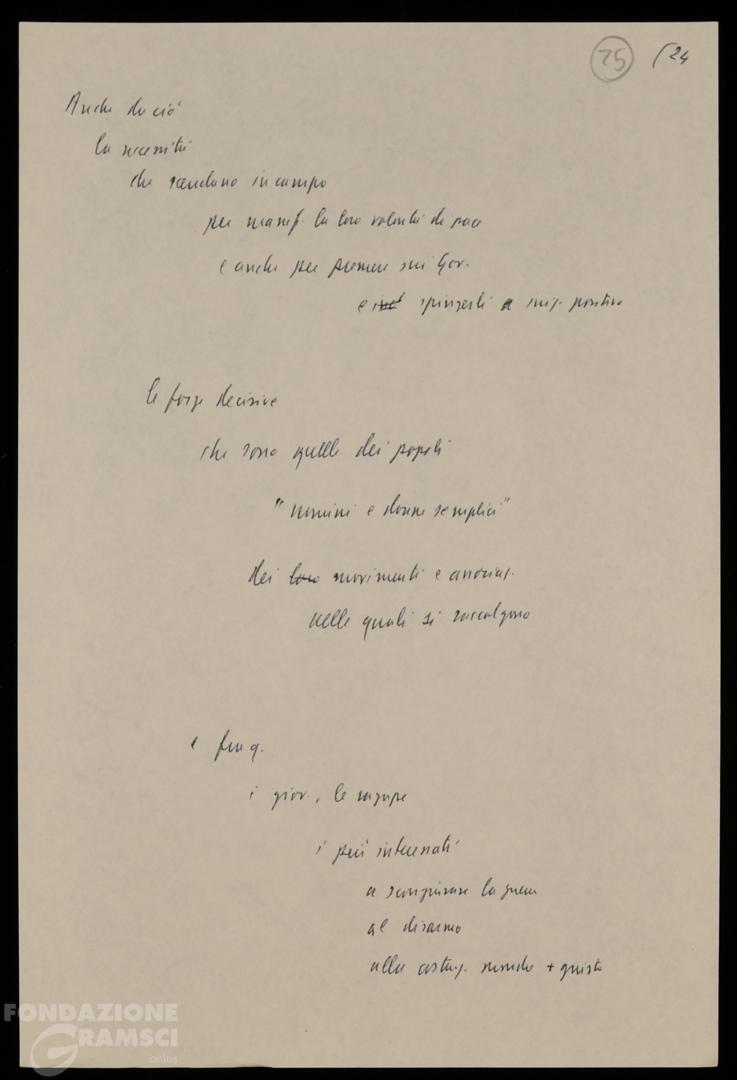 75 (24
Anche da ciò
la necessità
che scendano in campo
per manif. la loro volontà di pace
e anche per premere sui Gov.
e spingerli a iniz. positive
le forze decisive
che sono quelle dei popoli
"uomini e donne semplici"
dei loro movimenti e associaz.
nelle quali si raccolgono
e fra q.
i giov., le ragazze
i più interessati
a scongiurare la guerra
al disarmo
alla costruz. mondo + giusto
FONDAZIONE
GRAMSCI
onlus